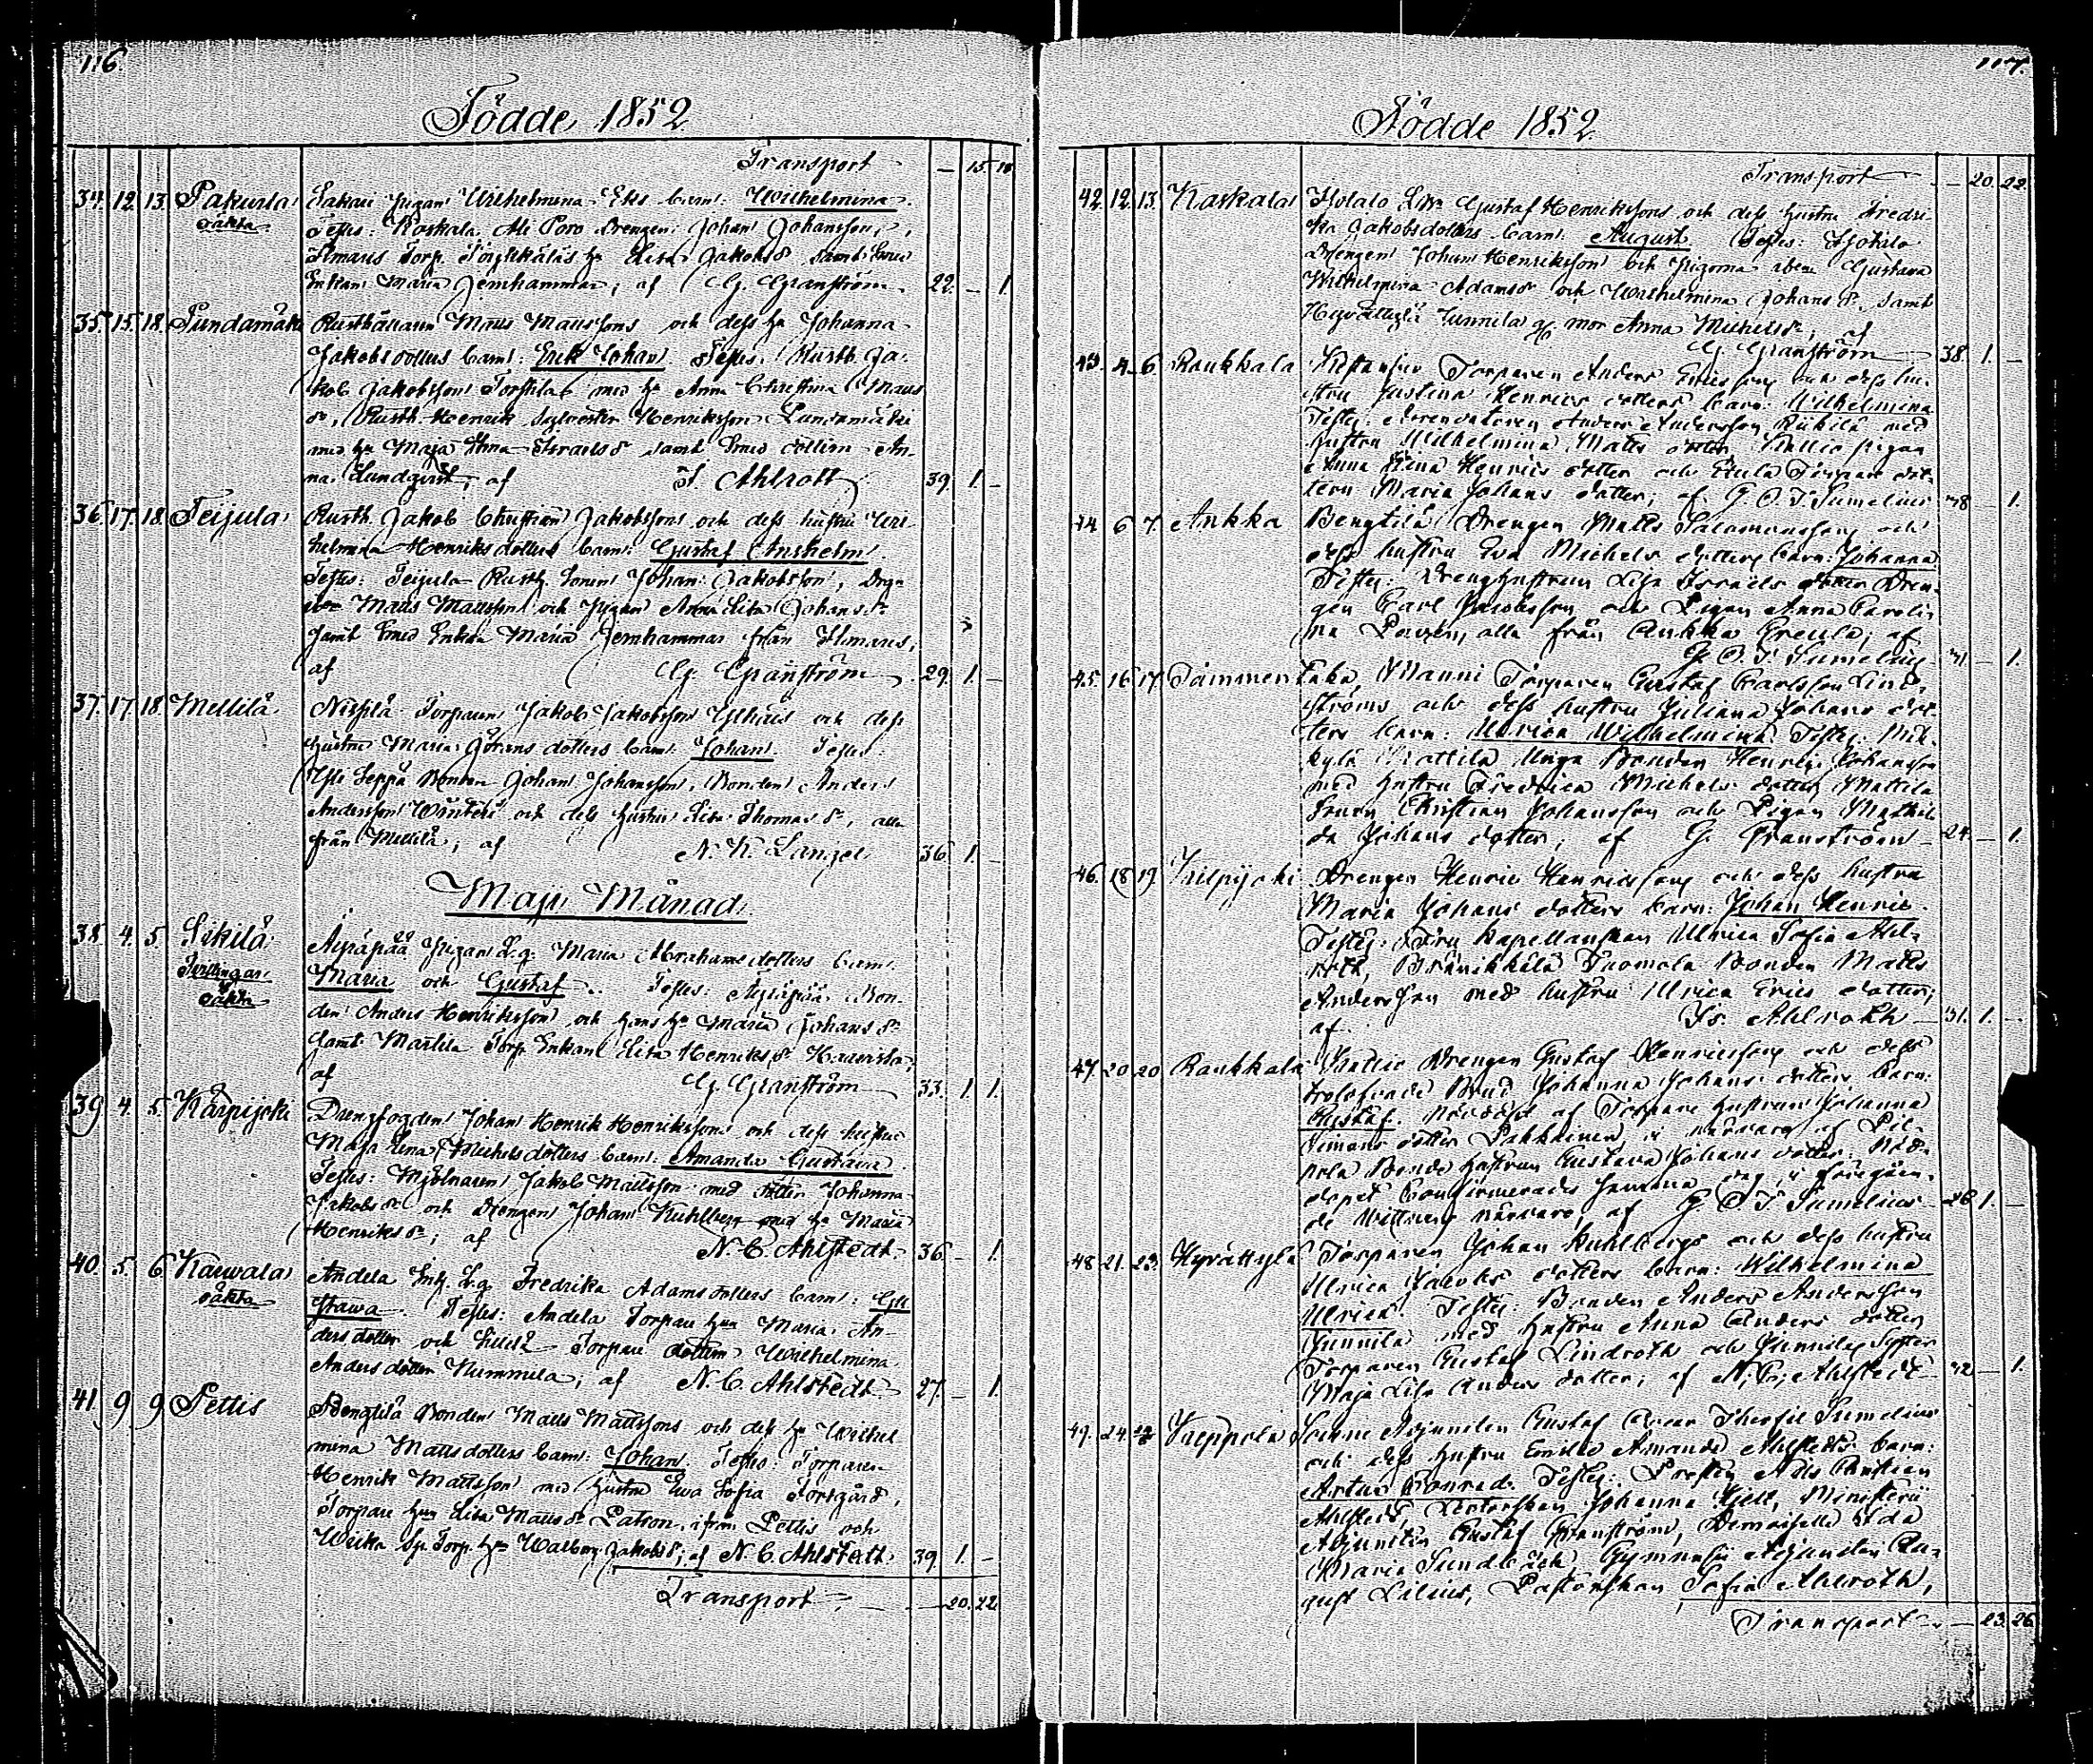 116.
Födde 1852
Transport — 15. 18.
34. 12. 13. Pakurla Sakari Pigan Wilhelmina Eks barn: Wilhelmina.
oäkta Testes: Koskala Ali Poro Drengen Johan Johansson,
Ilmaris Torp. hu Lisa Jakobs dr samt Smed
Enkan Maria Jernhammar; af G. Granström 22. — 1.
35. 15. 18. Pundamäki Rusthållaren Matts Mattssons och dess hu Johanna
Jakobsdotters barn: Erik Johan Testes: Rusth. Ja-
kob Jakobsson Torkkila med hu Anna Christina Matts
dr, Rusth. Henrik Sylvester Henriksson Pundamäki
med hu Maja Stina Israels dr samt Smed dottren An-
na Lundqvist; af I. Ahlrott 39. 1. —
36. 17. 18. Teijula Rusth. Jakob Christian Jakobssons och dess hustru Wil-
helmina Henriksdotters barn: Gustaf Anshelm.
Testes: Teijula Rusth. Sonen Johan Jakobsson, Drgn
Matts Mattsson och Pigan Anna Lisa Johans dr
samt Smed Enkan Maria Jernhammar från Ilmaris;
af G. Granström 29. 1. —
37. 17. 18. Mellilä Nissilä Torparen Jakob Jakobsson och dess
hustru Maria Görans dotters barn: Johan. Testes:
Yli Seppä Bonden Johan Johansson, Bonden Anders
Andersson Wänteri och dess hustru Lisa Thomas dr, alla
från Mellilä; af N. W. Langel 36. 1. —
Maji Månad
38. 4. 5. Sikilä Äijäpää Pigan L. q. Maria Abrahamsdotters barn:
Tvillingar Maria och Gustaf. Testes: Äijäpää Bon-
oäkta den Anders Henriksson och hans hu Maria Johans dr
samt Marttila Torp. Enkan Lisa Henriks dr
af G. Granström 33. 1. 1.
39. 4. 5. Karpijoki Drengfogden Johan Henrik Henrikssons och dess hustru
Maja Lena Michelsdotters barn: Amanda Gustava.
Testes: Mjölnaren Jakob Mattsson med dotter Johanna
Jakobs dr och Drengen Johan Kuhlberg med hu Maria
Henriks dr; af N. C. Ahlstedt 36. — 1.
40. 5. 6. Karwala Andela Inh. L. q. Fredrika Adamsdotters barn: Gu
oäkta stawa. Testes: Andela Torpare hun Maria An-
dersdotter och Torpare dottren Wilhelmina
Andersdotter Nummela; af N. C. Ahlstedt 27. — 1.
41. 9. 9. Pettis Bengtilä Bonden Matts Mattssons och dess hu Wilhel
mina Mattsdotters barn: Johan. Testes: Torparen
Henrik Mattsson med hustru Ewa Sofia Forsgård,
Torpare hun Lisa Matts dr Patron, ifrån Pettis och
Torp. hu Walborg Jakobs dr; af N. C. Ahlstedt 39. 1. —
Transport — 20. 22.
117.
Födde 1852
Transport — 20. 22.
42. 12. 13. Kaskala Gustaf Henrikssons och dess hustru Fredri
ka Jakobsdotters barn: August. Testes:
Drengen Johan Henriksson och Pigorna Gustava
Wilhelmina Adams dr och Wilhelmina Johans dr, samt
Hyvättylä Junnila mor Anna Michels dr; af
G. Granström 38. 1. —
43. 4. 6. Raukkala Torparen Anders Ericssons och dess hu-
stru Justina Henrics dotters barn: Wilhelmina
Testes: Arrendatoren Anders Andersson med
hustru Wilhelmina Matts dotter, Kallio pigan
Anna Stina Henrics dotter och Torpare dot-
tern Maria Johans dotter; af G. O. T. Sumelius 48 — 1.
44. 6. 7. Ankka Bengtilä Drengen Matts Salomonssons och
dess hustru Eva Michels dotters barn: Johanna
Testes: Drenghustrun Lisa Israels dotter Dren-
gen Carl Jacobsson och Pigan Anna Caroli-
na alla från Ankka Greula; af
G. O. T. Sumelius 41 — 1.
45. 16. 17. Tammentaka, Manni Torparen Gustaf Carlsson Lind-
ströms och dess hustru Juliana Johans dot-
ters barn: Ulrica Wilhelmina. Testes:
kylä Mattila Unga Bonden Henric Johansson
med hustru Fredrica Michels dotter, Mattila
Sonen Christian Johansson och Pigan Mathil-
da Johans dotter; af G. Granström 24. — 1.
46. 18. 19. Drengen Henric Henricssons och dess hustru
Maria Johans dotters barn: Johan Henric.
Testes: Fru Kapellanskan Ulrica Sofia Ahl-
roth, Tuomola Bonden Matts
Andersson med hustru Ulrica Erics dotter;
af Is. Ahlroth 31. 1. —
47. 20. 20. Raukkala Kallio Drengen Gustaf Henricssons och dess
trolofvade Brud Johanna Johans dotters barn:
Gustaf. Nöddöpt af Torpare hustrun Johanna
Simons dotter Pakkainen, i närvaro af
Bonde hustrun Gustava Johans dotter. Nöd-
dopet Confirmerades samma dag, i föregåen-
de Wittnens närvaro, af G. O. T. Sumelius 26 1. —
48. 21. 23. Hyvättylä Torparen Johan Kuhlbergs och dess hustru
Ulrica Jacobs dotters barn: Wilhelmina
Ulrica. Testes: Bonden Anders Andersson
Junnila med hustru Anna Anders dotter,
Torparen Gustaf Lindroth och Junnila Syster
Maja Lisa Anders dotter; af N. C. Ahlstedt 42 — 1.
49. 24. Vaeppola Sockne Adjuncten Gustaf Oscar Theofil Sumelius
och dess hustru Emilie Amanda Ahlstedts barn:
Artur Conrad. Testes: Prosten Nils Christian
Ahlstedt, Johanna Hjelt, Ministerii
Adjuncten Gustaf Granström, Demoiselle Ida
Maria Sundbäck, Gymnasii Adjuncten Au-
gust Lilius, Pastorskan Sofia Ahlroth,
Transport — 23. 26